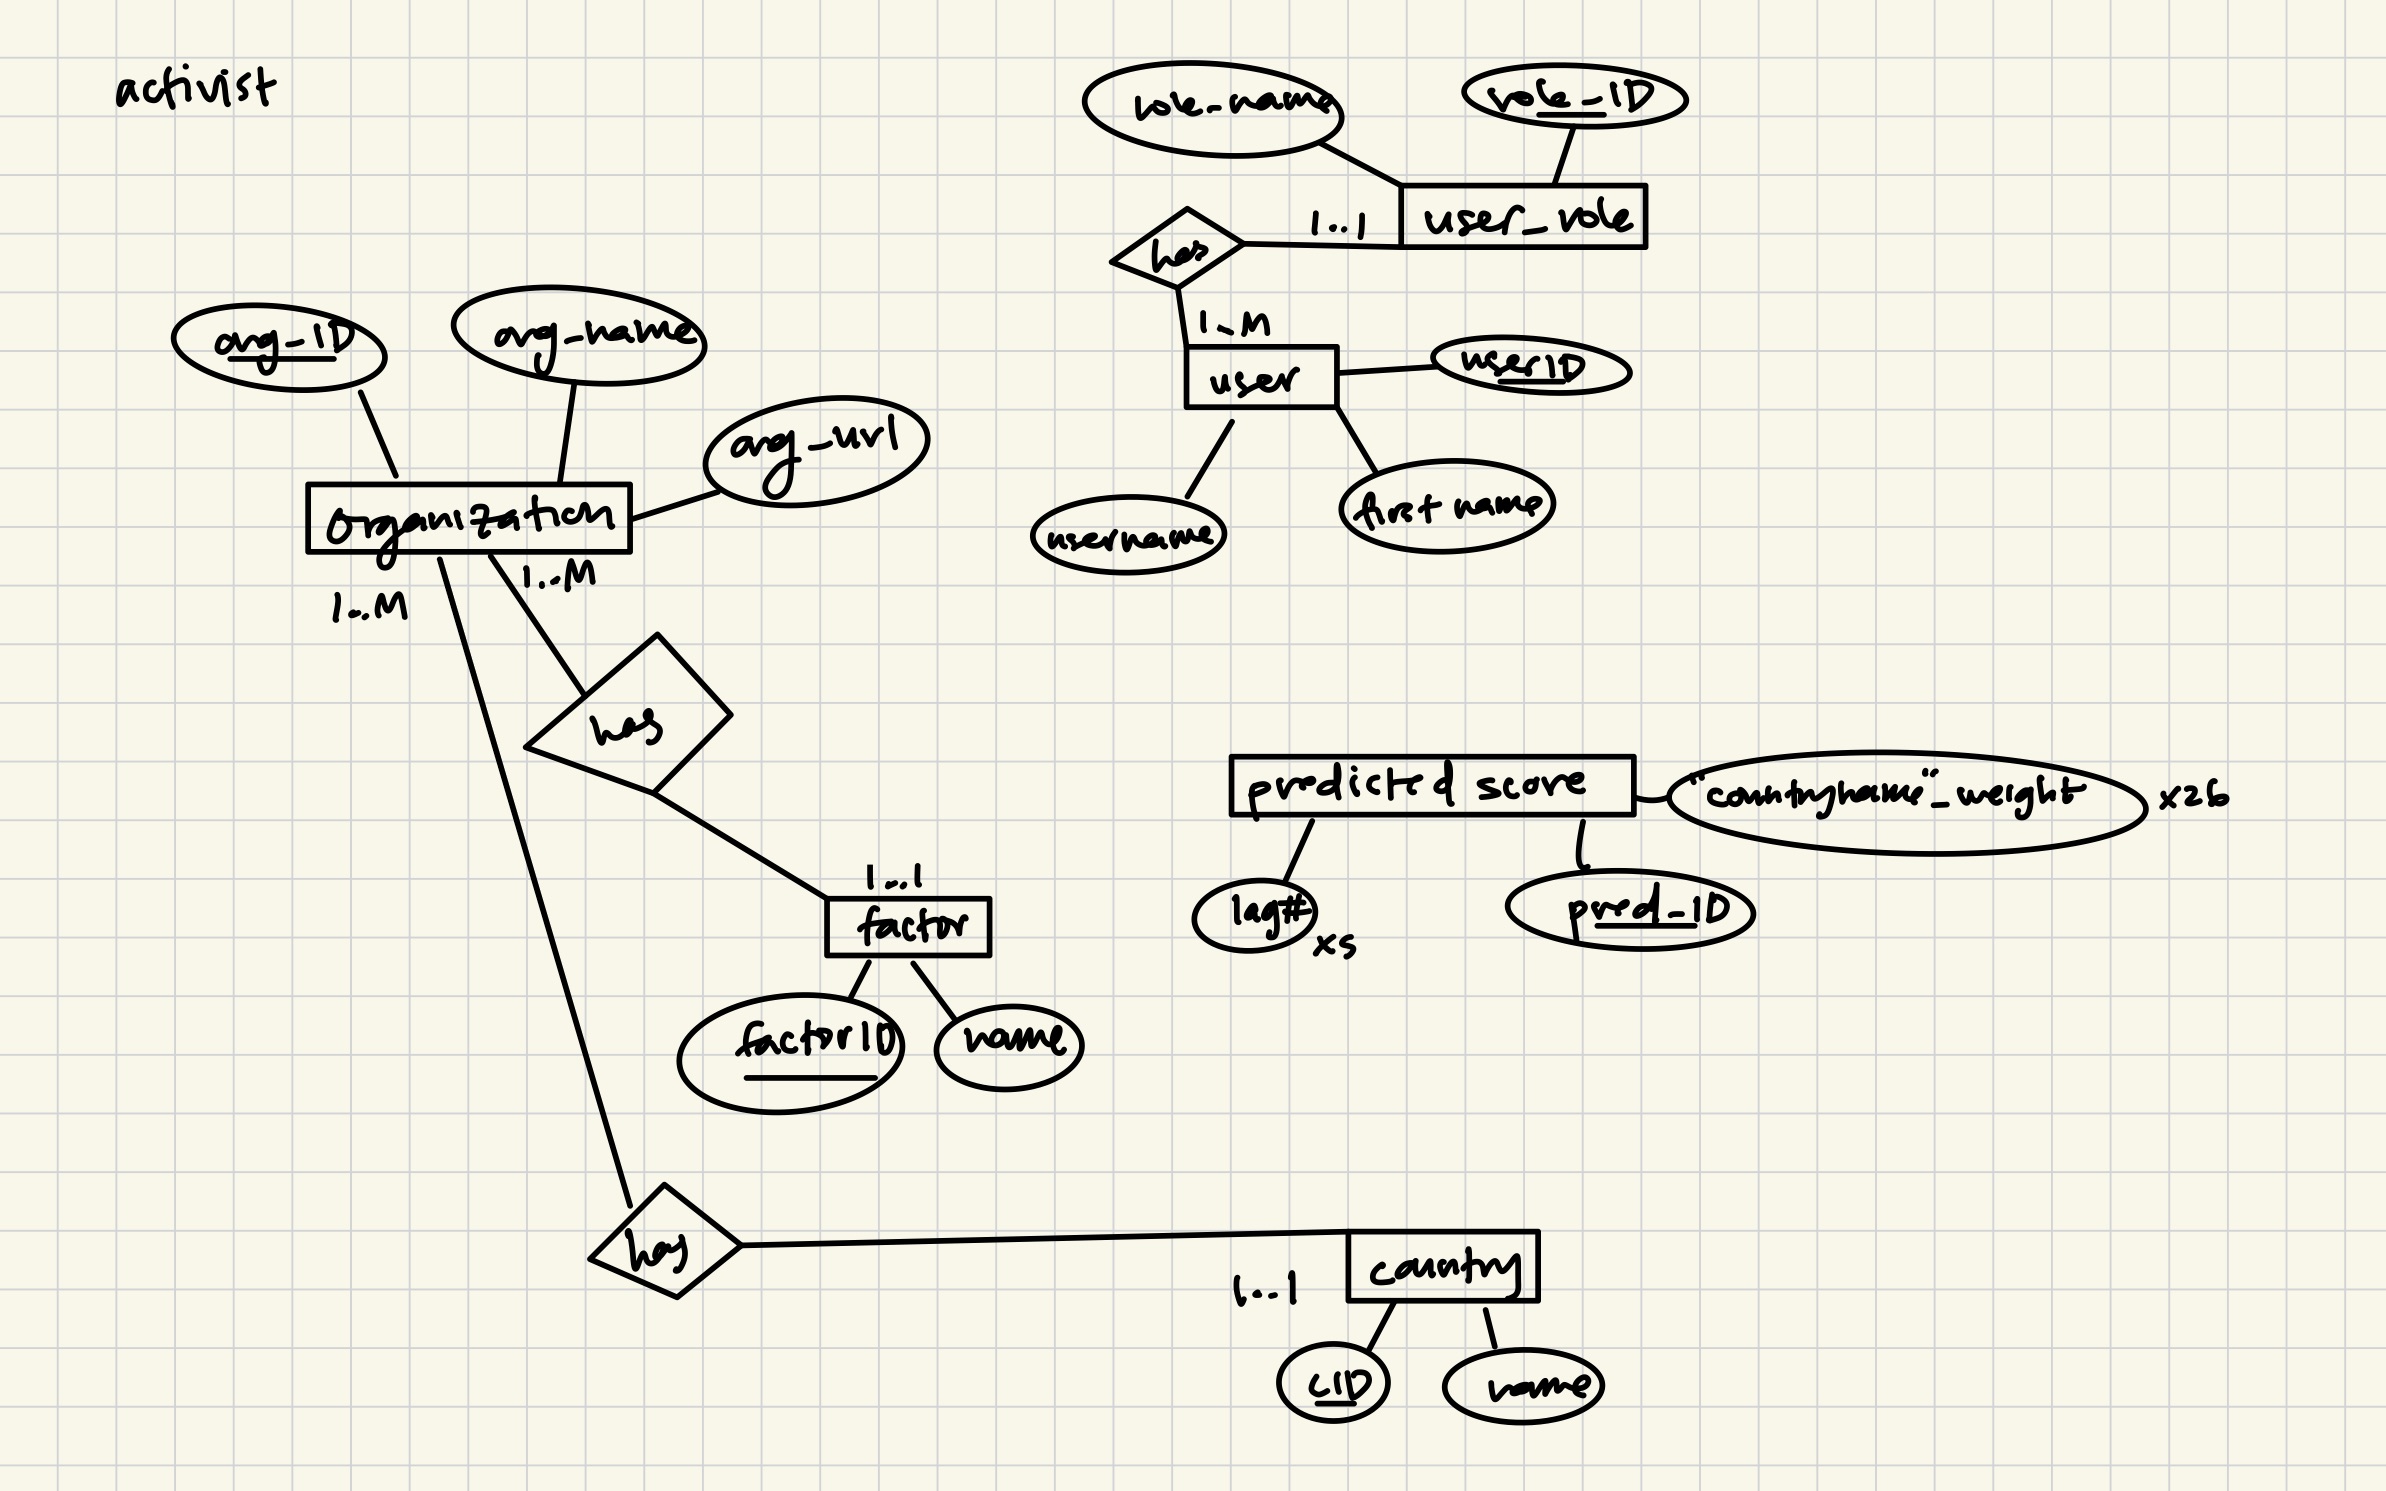 activist
role_name
role_ID
user_role
1..1
has
1..M
user
userID
username
first name
org_ID
org_name
org_url
organization
1..M
1..M
has
1..1
factor
factorID
name
predicted score
"countryname"_weight x26
lag# x5
pred_ID
has
1..1
country
cID
name